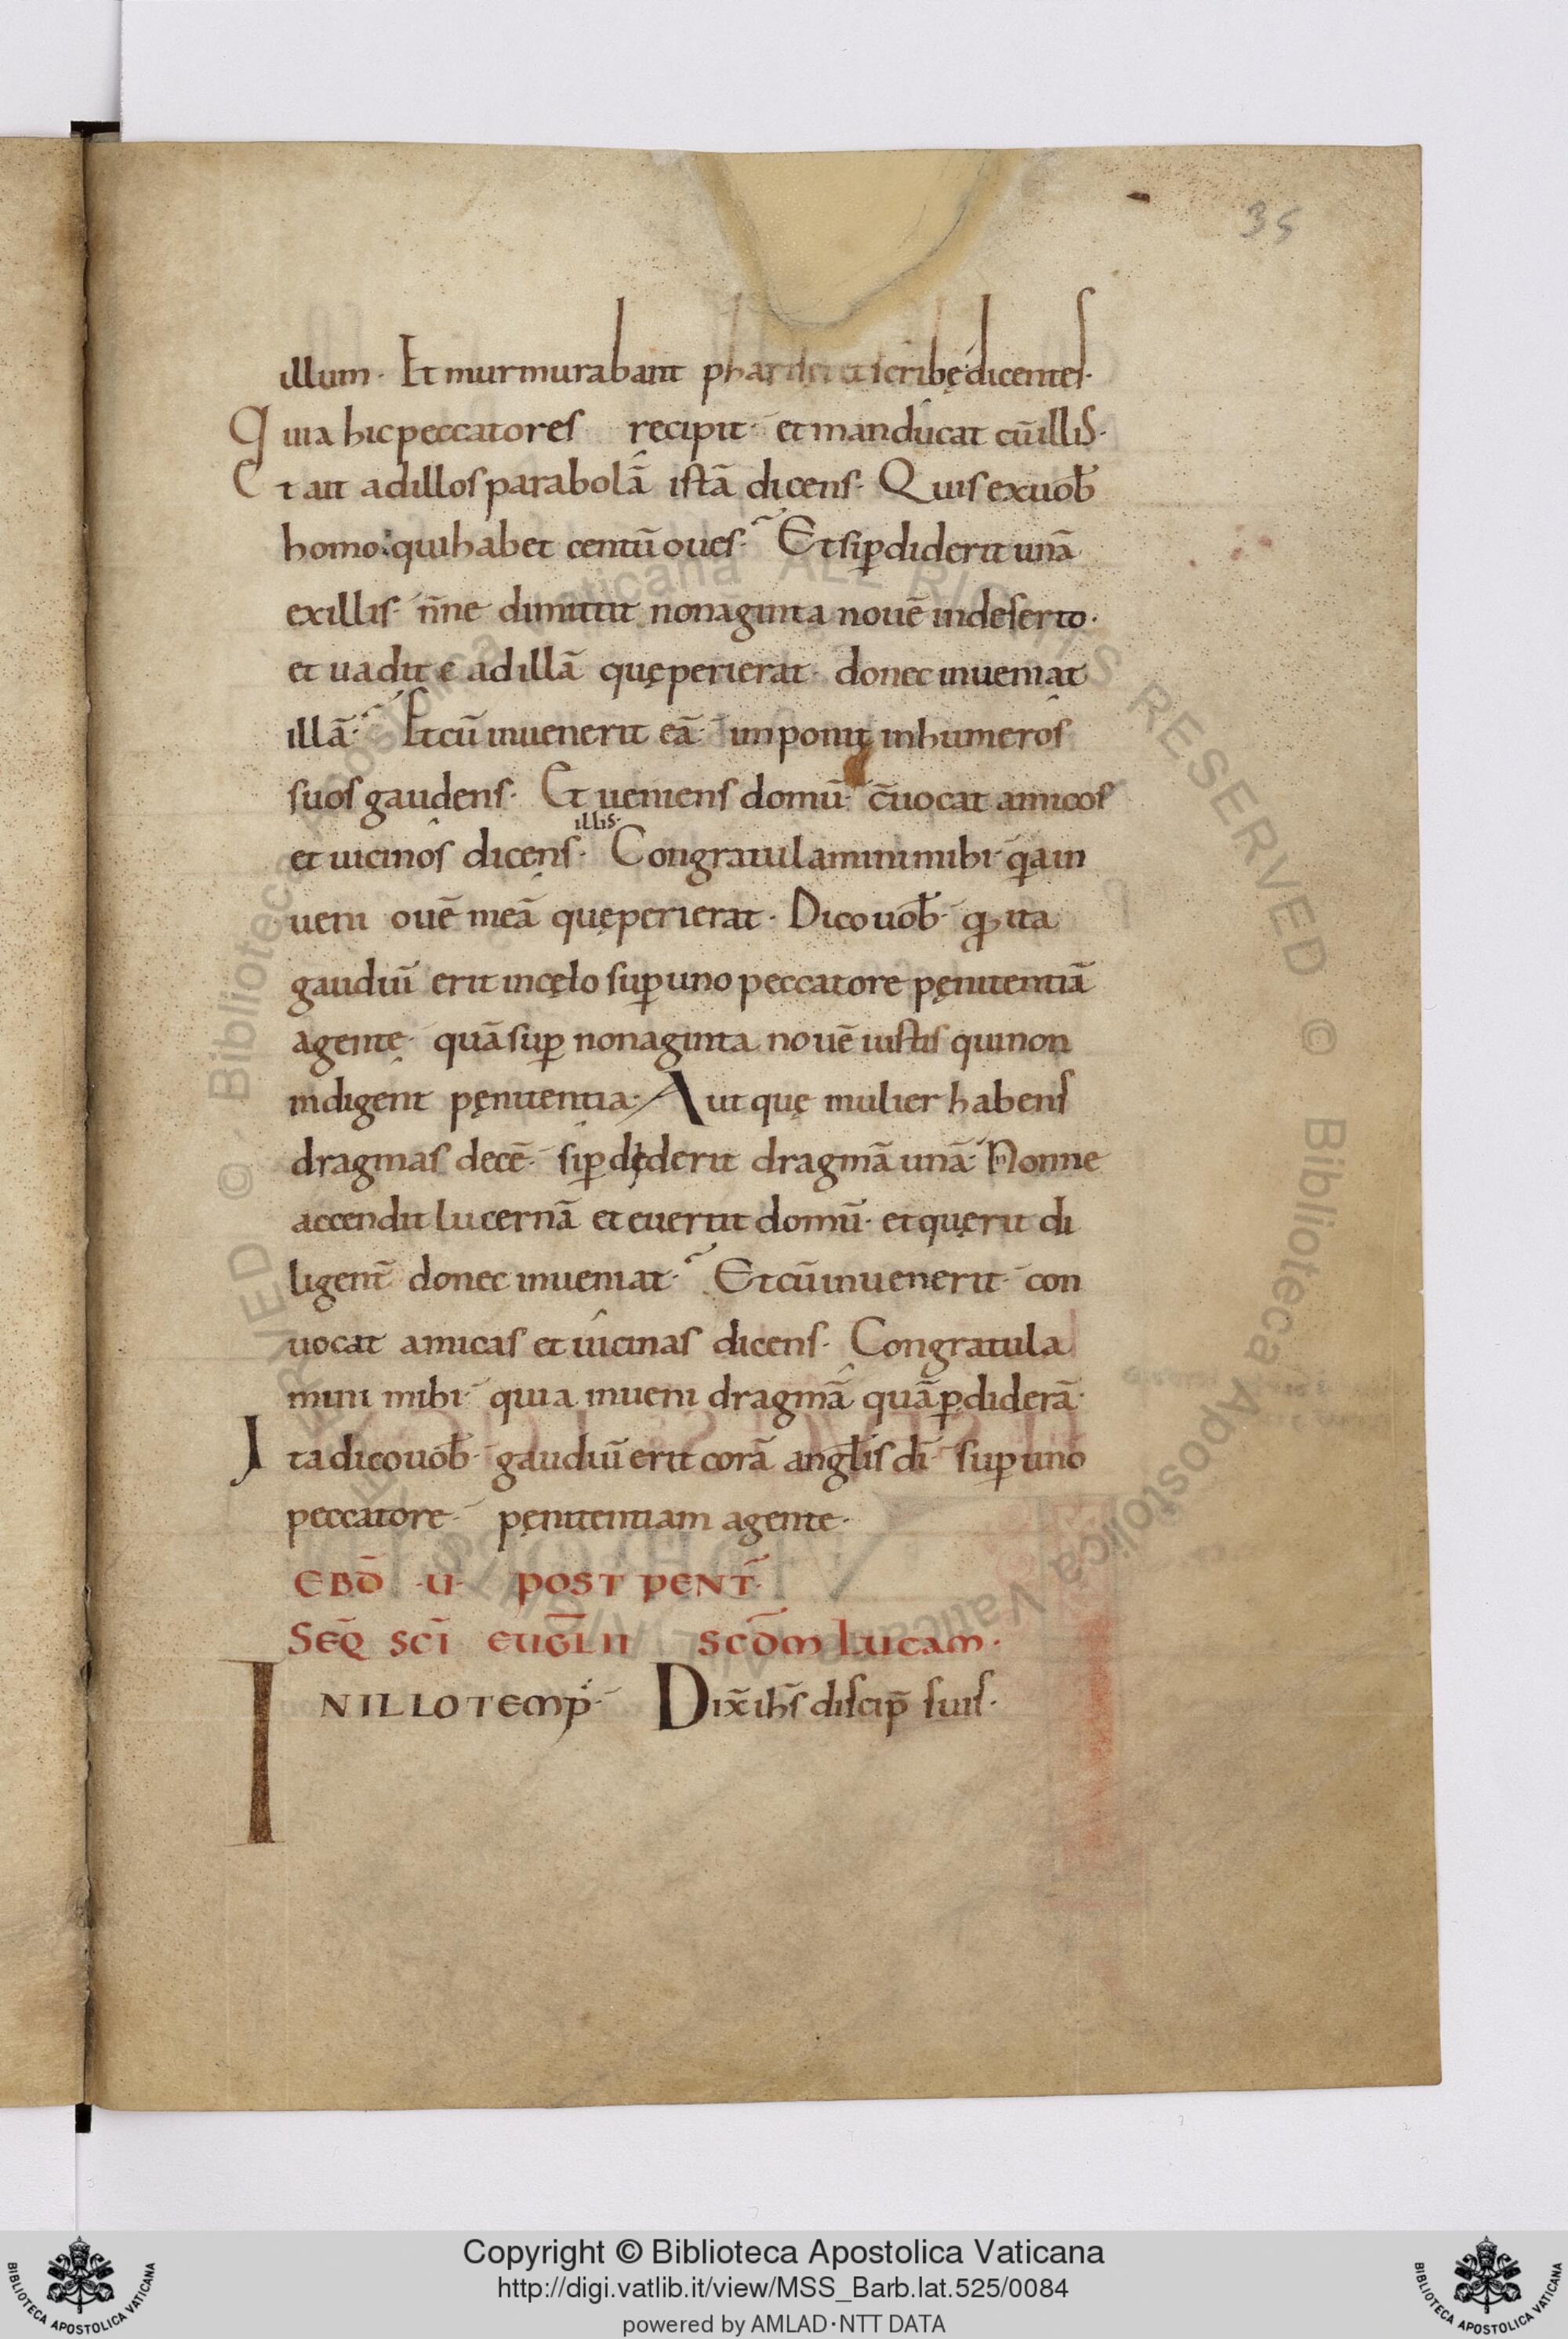 35
illum· Et murmurabant pharisei et scribę dicentes·
Quia hic peccatores recipit· et manducat cū illis·
Et ait ad illos parabolā istā dicens· Quis ex uob̄
homo· qui habet centū oues· Et si ꝑdiderit unā
ex illis· n̄ne dimittit nonaginta nouē in deserto·
et uadit e ad illā quę perierat· donec inueniat
illā· Et cū inuenerit eā· imponit in humeros
suos gaudens· Et ueniens domū· c̄uocat amicos
illis·
et uicinos dicens· Congratulamini mihi· q̄a in
ueni ouē meā quę perierat· Dico uob̄· qđ ita
gaudiū erit in cęlo suꝑ uno peccatore pęnitentiā
agente· quā suꝑ nonaginta nouē iustis qui non
indigent pęnitentia· Aut quę mulier habens
dragmas decē· si ꝑdiderit dragmā unā· Nonne
accendit lucernā et euertit domū· et quęrit di
ligent̄ donec inueniat· Et cū inuenerit· con
uocat amicas et uicinas dicens· Congratula
mini mihi· quia inueni dragmā quā ꝑdiderā·
Ita dico uob̄· gaudiū erit corā angl̄is dī· suꝑ uno
peccatore· pęnitentiam agente·
EBD̄ ·U· POST PENT̄·
SEQ̄ SCĪ EUḠLII SCD̄M LUCAM·
IN ILLO TEMP̄· Dix̄ ih̄s discip̄ suis·
Copyright © Biblioteca Apostolica Vaticana
http://digi.vatlib.it/view/MSS_Barb.lat.525/0084
powered by AMLAD·NTT DATA
BIBLIOTECA APOSTOLICA VATICANA
BIBLIOTECA APOSTOLICA VATICANA